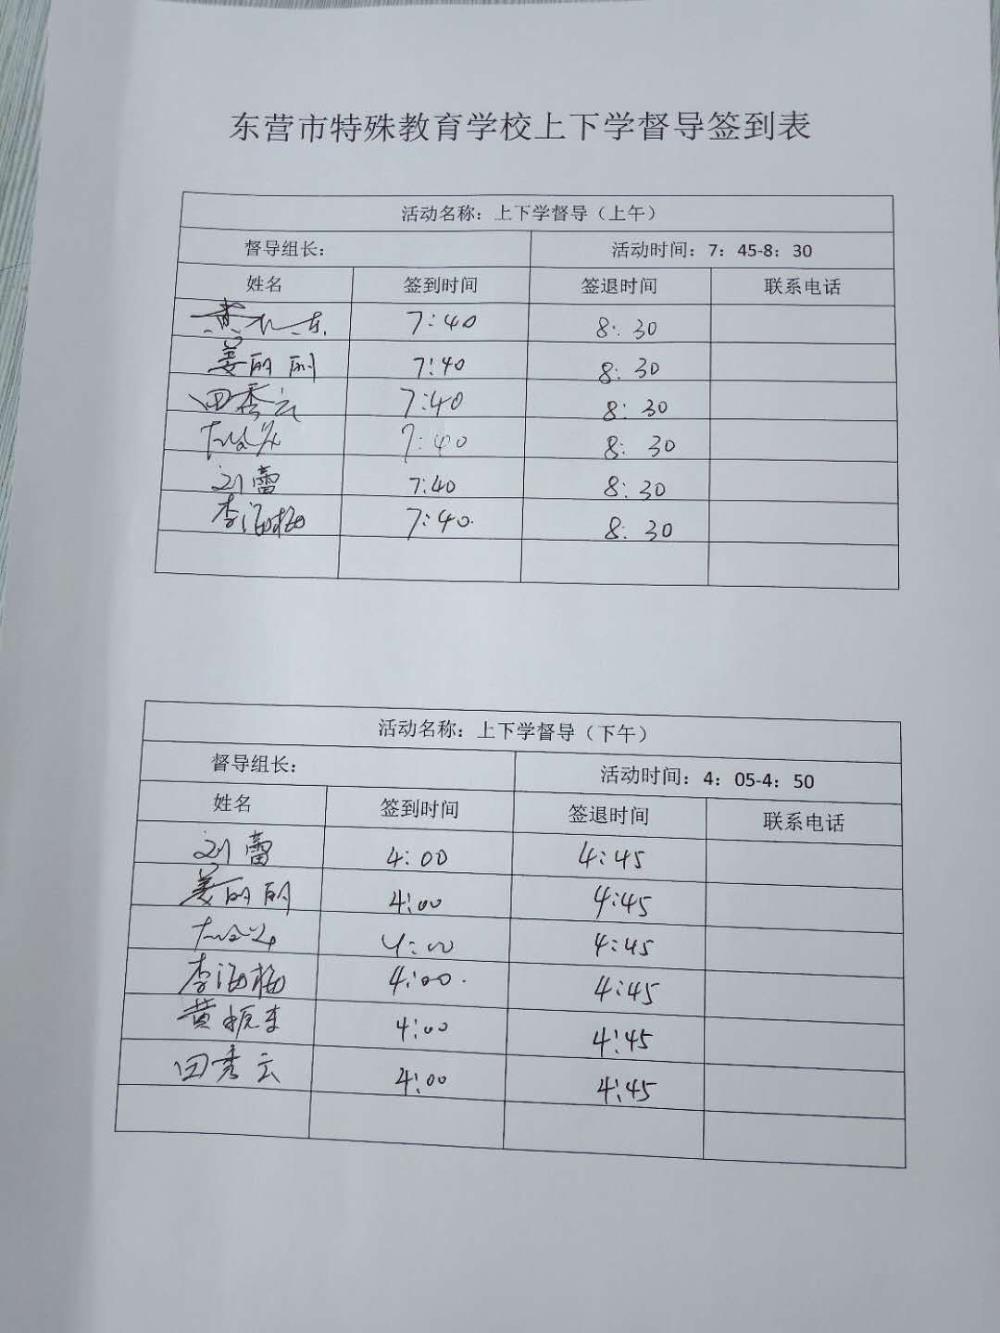 东营市特殊教育学校上下学督导签到表
活动名称：上下学督导（上午）
督导组长： 活动时间：7：45-8：30
姓名 签到时间 签退时间 联系电话
黄振东 7:40 8:30
姜丽丽 7:40 8:30
田秀云 7:40 8:30
7:40 8:30
刘蕾 7:40 8:30
李海梅 7:40. 8:30
活动名称：上下学督导（下午）
督导组长： 活动时间：4：05-4：50
姓名 签到时间 签退时间 联系电话
刘蕾 4:00 4:45
姜丽丽 4:00 4:45
4:00 4:45
李海梅 4:00. 4:45
黄振东 4:00 4:45
田秀云 4:00 4:45